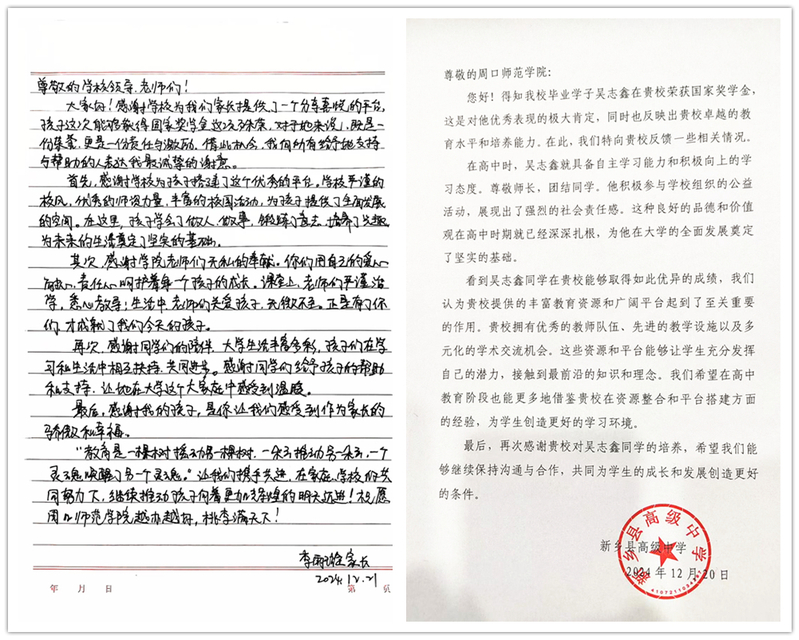 尊敬的学校领导、老师们！
大家好！感谢学校为我们家长提供了一个分享喜悦的平台，
孩子这次能够获得国家奖学金这项殊荣，对于她来说，既是一
份荣誉，更是一份责任与激励，借此机会，我向所有给予她支持
与帮助的人表达我最诚挚的谢意。
首先，感谢学校为孩子搭建了这个优秀的平台。学校严谨的
校风，优秀的师资力量，丰富的校园活动，为孩子提供了全面发展
的空间。在这里，孩子学会了做人、做事，锻炼了意志，培养了兴趣，
为未来的生活奠定了坚实的基础。
其次，感谢学院老师们无私的奉献。你们用自己的爱心、
耐心、责任心呵护着每一个孩子的成长，课堂上，老师们严谨治
学，悉心教导；生活中，老师们关爱孩子，无微不至。正是有了你
们，才成就了我们今天的孩子。
再次，感谢同学们的陪伴，大学生活丰富多彩，孩子们在学
习和生活中相互扶持、共同进步。感谢同学们给予孩子的帮助
和支持，让她在大学这个大家庭中感受到温暖。
最后，感谢我的孩子，是你让我们感受到作为家长的
骄傲和幸福。
“教育是一棵树摇动另一棵树，一朵云推动另一朵云，一个
灵魂唤醒了另一个灵魂。”让我们携手共进，在家庭、学校的共
同努力下，继续推动孩子向着更加辉煌的明天迈进！祝愿
周口师范学院越办越好，桃李满天下！
家长
2024.12.21
年 月 日 第 页
尊敬的周口师范学院：
您好！得知我校毕业学子吴志鑫在贵校荣获国家奖学金，
这是对他优秀表现的极大肯定，同时也反映出贵校卓越的教
育水平和培养能力。在此，我们特向贵校反馈一些相关情况。
在高中时，吴志鑫就具备自主学习能力和积极向上的学
习态度。尊敬师长，团结同学。他积极参与学校组织的公益
活动，展现出了强烈的社会责任感。这种良好的品德和价值
观在高中时期就已经深深扎根，为他在大学的全面发展奠定
了坚实的基础。
看到吴志鑫同学在贵校能够取得如此优异的成绩，我们
认为贵校提供的丰富教育资源和广阔平台起到了至关重要
的作用。贵校拥有优秀的教师队伍、先进的教学设施以及多
元化的学术交流机会。这些资源和平台能够让学生充分发挥
自己的潜力，接触到最前沿的知识和理念。我们希望在高中
教育阶段也能更多地借鉴贵校在资源整合和平台搭建方面
的经验，为学生创造更好的学习环境。
最后，再次感谢贵校对吴志鑫同学的培养，希望我们能
够继续保持沟通与合作，共同为学生的成长和发展创造更好
的条件。
新乡县高级中学
2024 年 12 月 20 日
新乡县高级中学